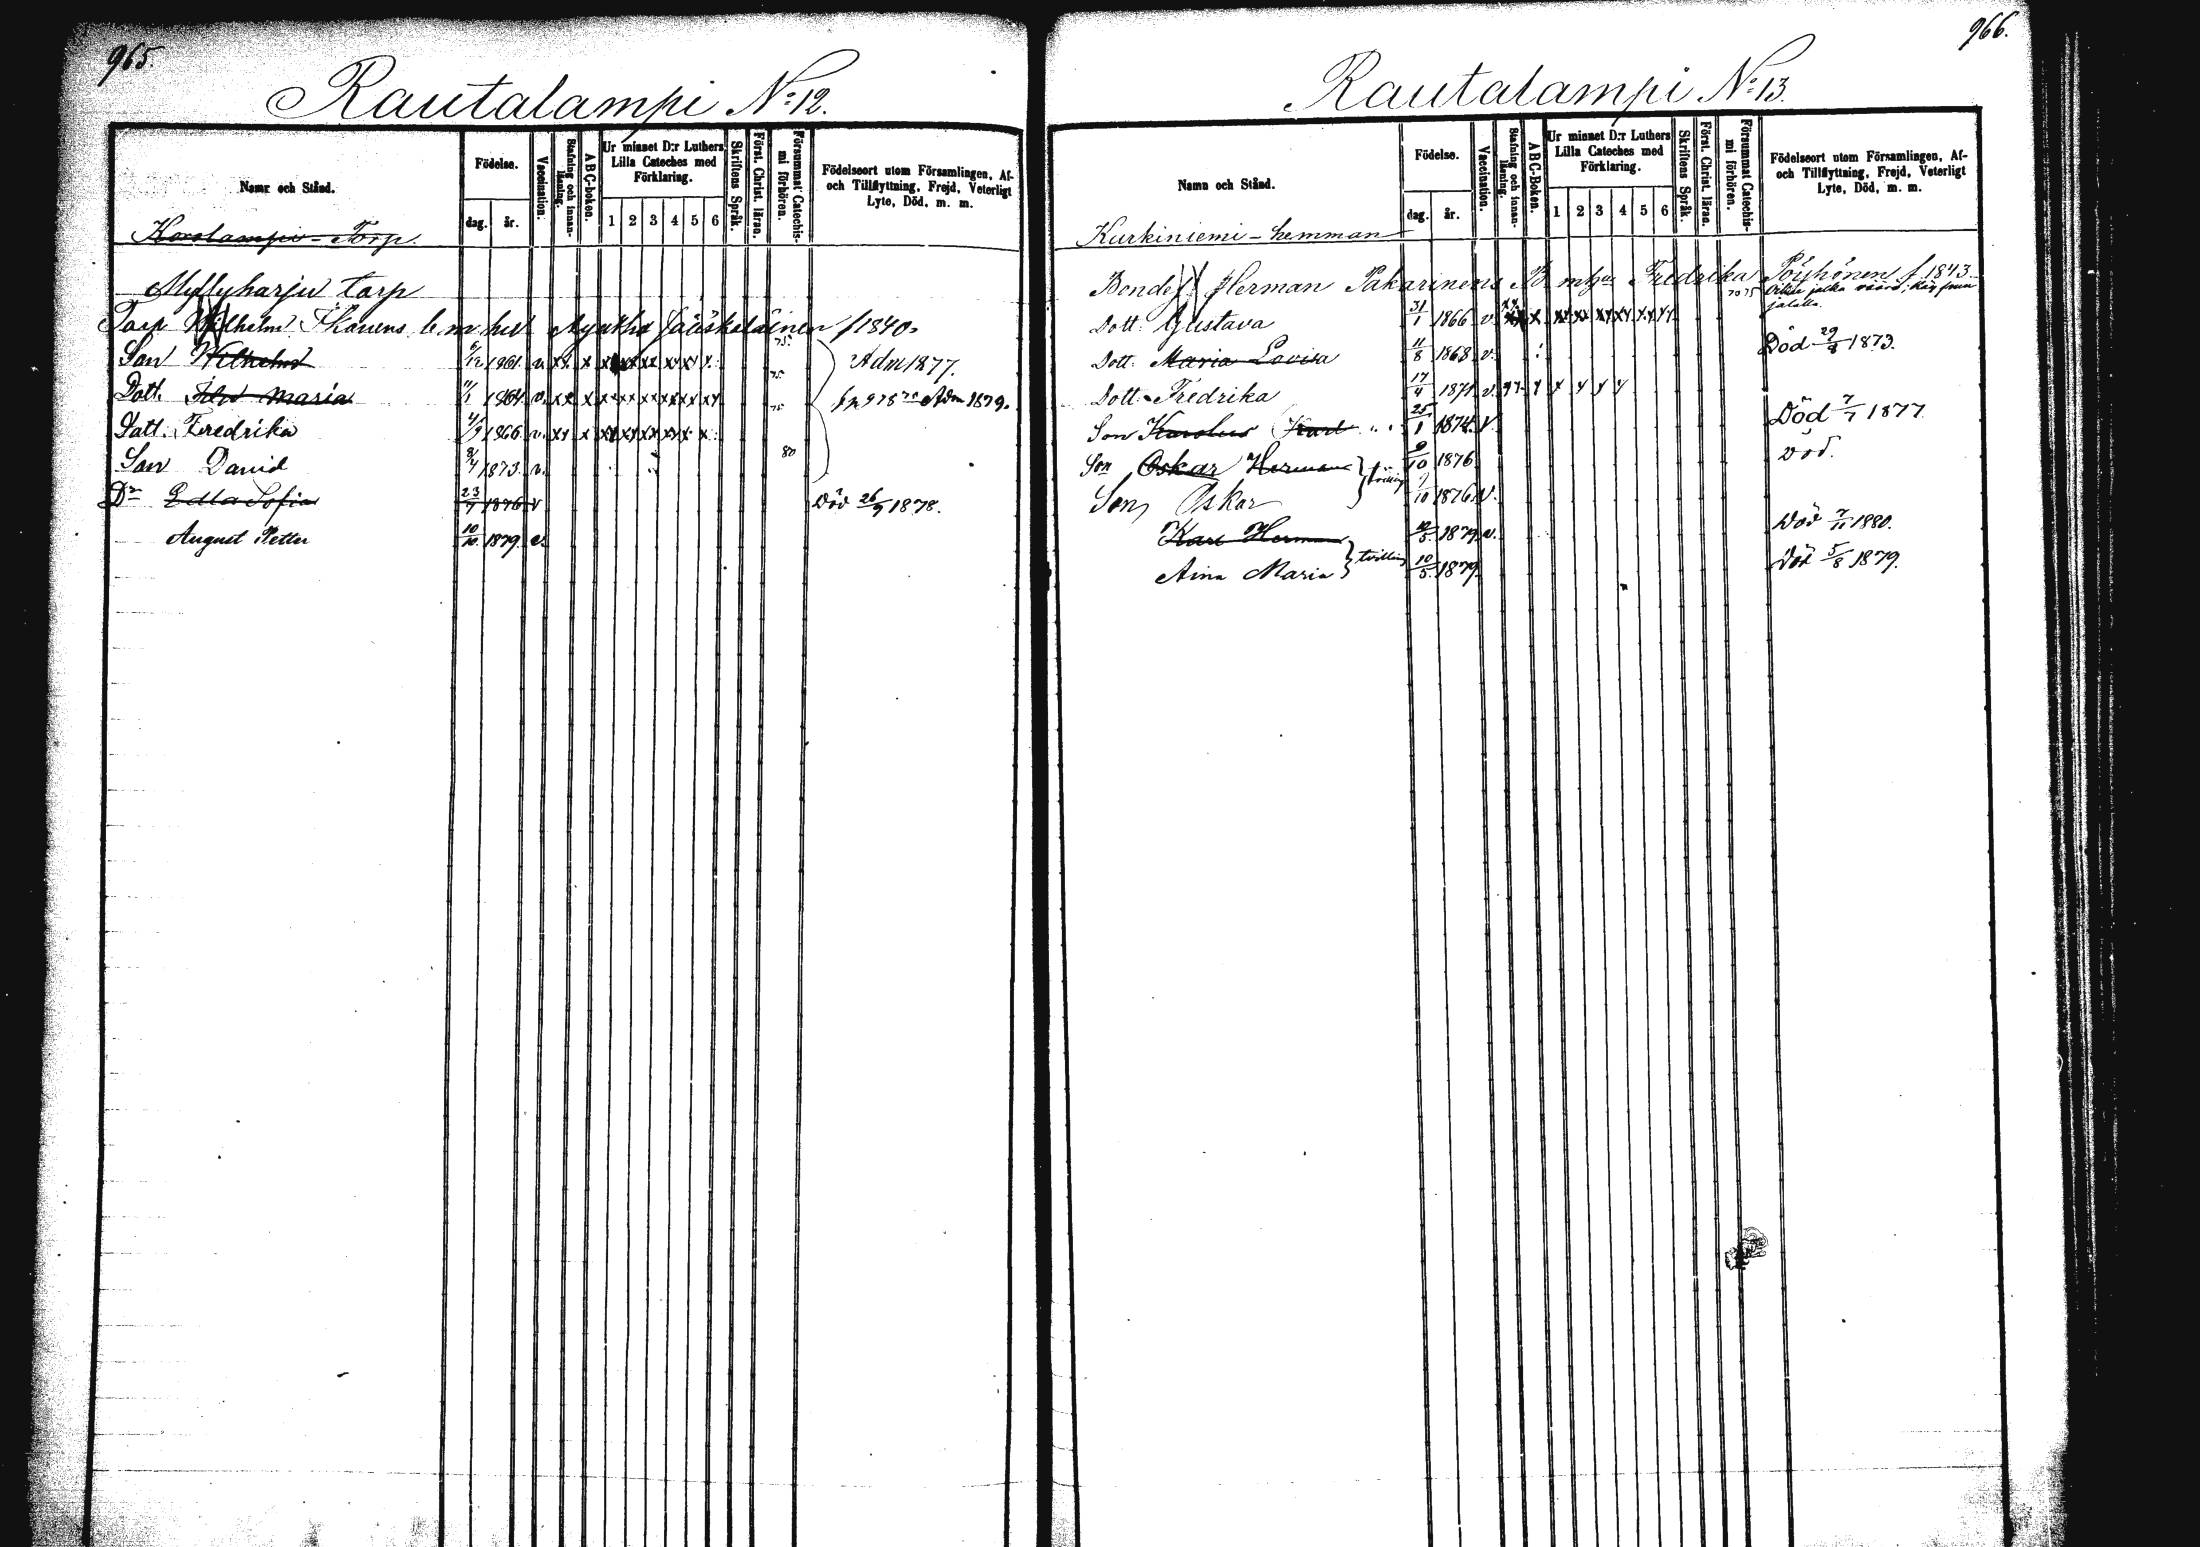 965.
Rautalampi No: 12.
Namn och Stånd.
Födelse.
dag. år.
Vaccination.
Stafning och innan-läsning.
ABC-boken.
Ur minnet D:r Luthers Lilla Cateches med Förklaring.
1 2 3 4 5 6
Skriftens Språk.
Först. Christ. läran.
Försummat Catechis-mi förhören.
Födelseort utom Församlingen, Af- och Tillflyttning, Frejd, Veterligt Lyte, Död, m. m.
Torp.
Myllyharju torp
Torp Wilhelm b m hu Jääskeläinen f 1840.
Son Wilhelm 6/12 1861. v. xx x 75. Adm 1877.
Dott. Maria 1864. v. xx x 75 Adm 1879.
Dott. Fredrika 4/9 1866 v. xx x 75
Son David 8/4 1873. v. 80
Dr Edla Sofia 23/7 1876 v Död 26/9 1878.
August Petter 10/10 1879. v.
966.
Rautalampi No: 13.
Namn och Stånd.
Födelse.
dag. år.
Vaccination.
Stafning och innan-läsning.
ABC-Boken.
Ur minnet D:r Luthers Lilla Cateches med Förklaring.
1 2 3 4 5 6
Skriftens Språk.
Först. Christ. läran.
Försummat Catechis-mi förhören.
Födelseort utom Församlingen, Af- och Tillflyttning, Frejd, Veterligt Lyte, Död, m. m.
Kurkiniemi - hemman
Bonde Herman Pakarinens B. m hu Fredrika Pöyhönen f 1843
Dott: Gustava 31/1 1866 v. xx x 70 75
Dott: Maria Lovisa 11/8 1868 v. Död 29/8 1873.
Dott: Fredrika 17/4 1871 v.
Son Karolus (Karl 25/1 1874. v. Död 7/7 1877
Son Oskar Herman 9/10 1876 död.
Son Oskar 9/10 1876 v.
Karl Herman 10/5 1879 v. Död 7/11 1880.
Aina Maria } tvilling 10/5 1879. Död 5/8 1879.